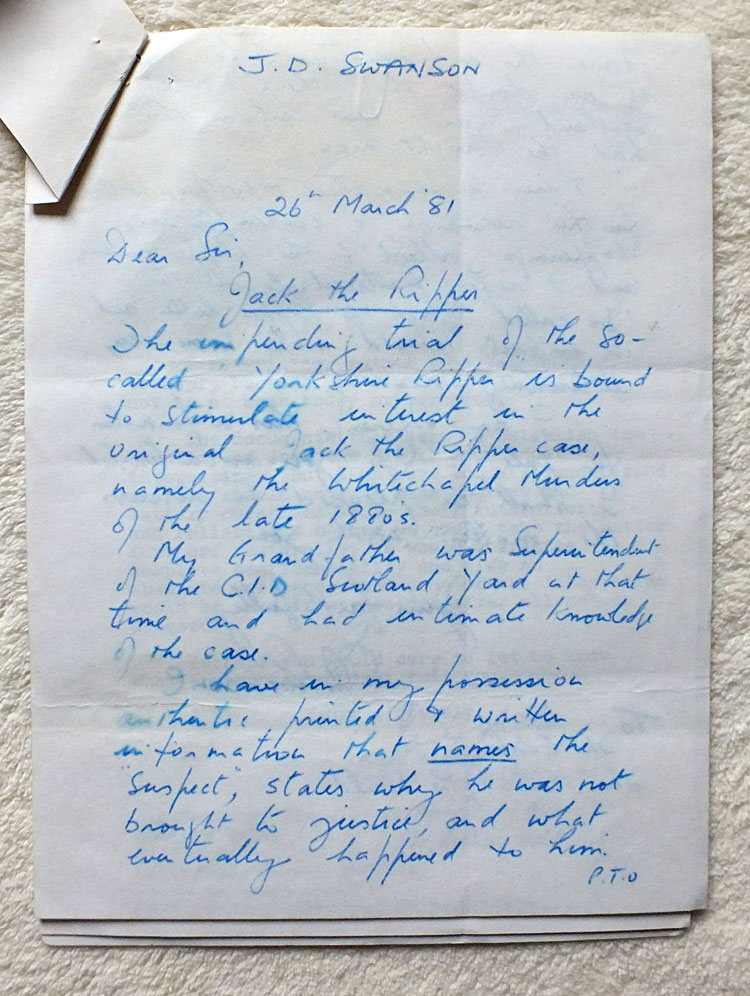 J.D. SWANSON
26th March '81
Dear Sir,
Jack the Ripper
The impending trial of the so-
called Yorkshire Ripper is bound
to stimulate interest in the
original Jack the Ripper case,
namely the Whitechapel Murders
of the late 1880's.
My Grandfather was Superintendent
of the C.I.D Scotland Yard at that
time and had intimate knowledge
of the case.
I have in my possession
authentic printed & written
information that names the
"Suspect", states why he was not
brought to justice, and what
eventually happened to him.
P.T.O